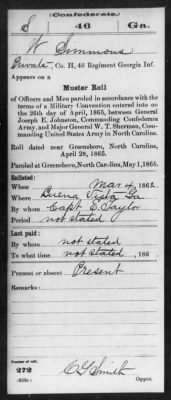 (Confederate.)
S 46 Ga.
W Simmons
Private, Co. H, 46 Regiment Georgia Inf.
Appears on a
Muster Roll
of Officers and Men paroled in accordance with the
terms of a Military Convention entered into on
the 26th day of April, 1865, between General
Joseph E. Johnston, Commanding Confederate
Army, and Major General W. T. Sherman, Com-
manding United States Army in North Carolina.
Roll dated near Greensboro, North Carolina,
April 28, 1865.
Paroled at Greensboro, North Carolina, May 1, 1865.
Enlisted:
When Mar 4, 1862.
Where Buena Vista Ga
By whom Capt E. Taylor
Period not stated
Last paid:
By whom not stated
To what time not stated, 186
Present or absent Present
Remarks:
Number of roll:
272
C G Smith
Copyist.